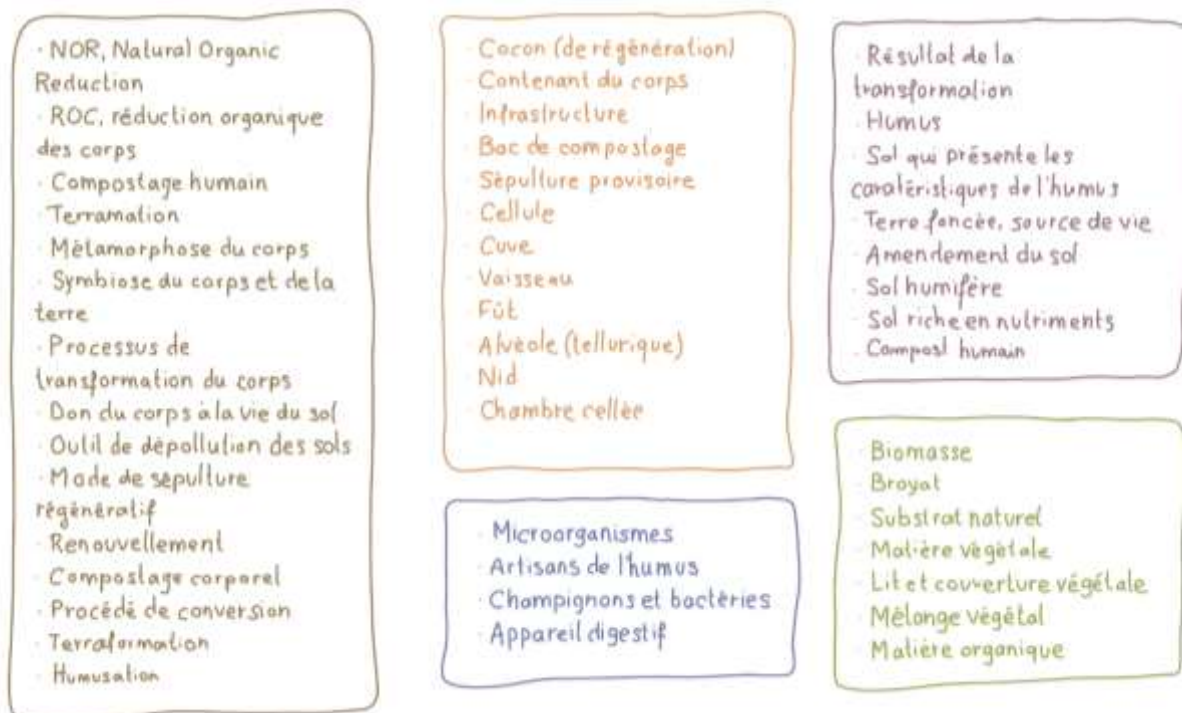 · NOR, Natural Organic
Reduction
· ROC, réduction organique
des corps
· Compostage humain
· Terramation
· Métamorphose du corps
· Symbiose du corps et de la
terre
· Processus de
transformation du corps
· Don du corps à la vie du sol
· Outil de dépollution des sols
· Mode de sépulture
régénératif
· Renouvellement
· Compostage corporel
· Procédé de conversion
· Terraformation
· Humusation
· Cocon (de régénération)
· Contenant du corps
· Infrastructure
· Bac de compostage
· Sépulture provisoire
· Cellule
· Cuve
· Vaisseau
· Fût
· Alvéole (tellurique)
· Nid
· Chambre cellée
· Microorganismes
· Artisans de l'humus
· Champignons et bactéries
· Appareil digestif
· Résultat de la
transformation
· Humus
· Sol qui présente les
caratéristiques de l'humus
· Terre foncée, source de vie
· Amendement du sol
· Sol humifère
· Sol riche en nutriments
· Compost humain
· Biomasse
· Broyat
· Substrat naturel
· Matière végétale
· Lit et couverture végétale
· Mélange végétal
· Matière organique